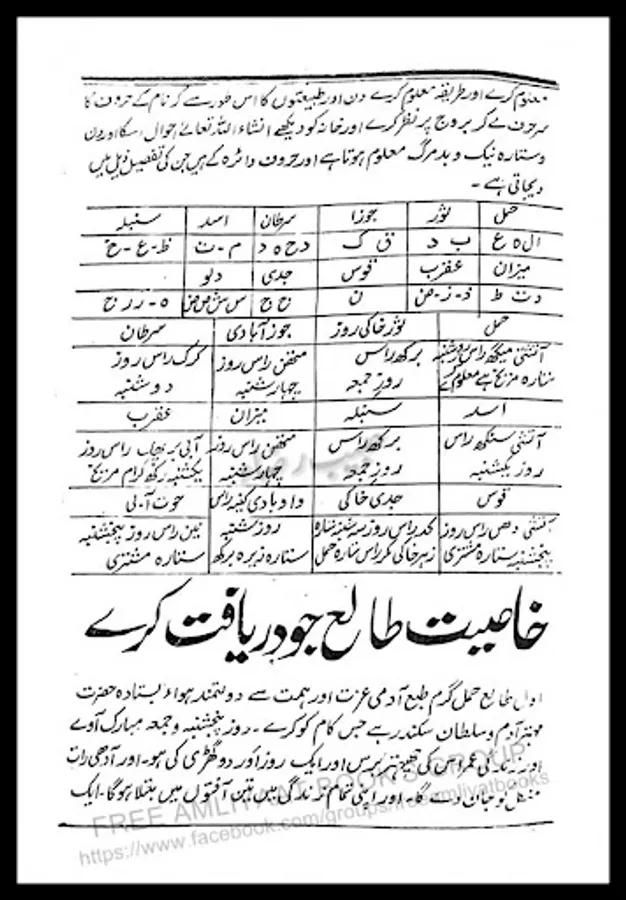 معلوم کرے اور طریقہ معلوم کرے دن اور طبیعتوں کا اس طور سے کہ نام کے حروف کا
سر حرف لے کر بروج پر نظر کرے اور خانہ کو دیکھے انشاء اللہ تعالےٰ احوال اسکا اور دن
و ستارہ نیک و بد مرگ معلوم ہوتا ہے اور حروف دائرہ کے ہیں جن کی تفصیل ذیل میں
دیجاتی ہے -
حمل ثور جوزا سرطان اسد سنبلہ
ال ہ ع ب د ق ک د ح ہ د م - ت ظ - ع - خ
میزان عقرب قوس جدی دلو
د ت ط ذ - ز - ض ن ج ح س ش ص ض ہ - ر ز ح
حمل ثور خاکی روز جوز آبادی سرطان
آتشی میکھ راس روز شنبہ برکھ راس متھن راس روز کرک راس روز
ستارہ مریخ ہے معلوم کرے روز جمعہ چہار شنبہ دو شنبہ
اسد سنبلہ میزان عقرب
آتشی سنگھ راس برکھ راس متھن راس روز آبی راس روز
روز یکشنبہ روز جمعہ چہار شنبہ یکشنبہ مریخ
قوس جدی خاکی حوت آبی
دھن راس روز راس روز روز شنبہ مین راس روز پنجشنبہ
پنجشنبہ ستارہ مشتری ستارہ زہرہ برکھ ستارہ مشتری
خاصیت طالع جو دریافت کرے
اول طالع حمل گرم طبع آدمی عزت اور ہمت سے دولتمند ہوا، ایستادہ حضرت
مہتر آدم و سلطان سکندر ہے جس کام کو کرے - روز پنجشنبہ و جمعہ مبارک آوے
اور زندگی عمر اس کی برس اور ایک روز اور دو گھڑی کی ہو - اور آدھی رات
دے گا - اور اپنی تمام زندگی میں تین آفتوں میں مبتلا ہوگا - ایک
FREE AMLIYAT BOOKS GROUP
https://www.facebook.com/groups/freeamliyatbooks